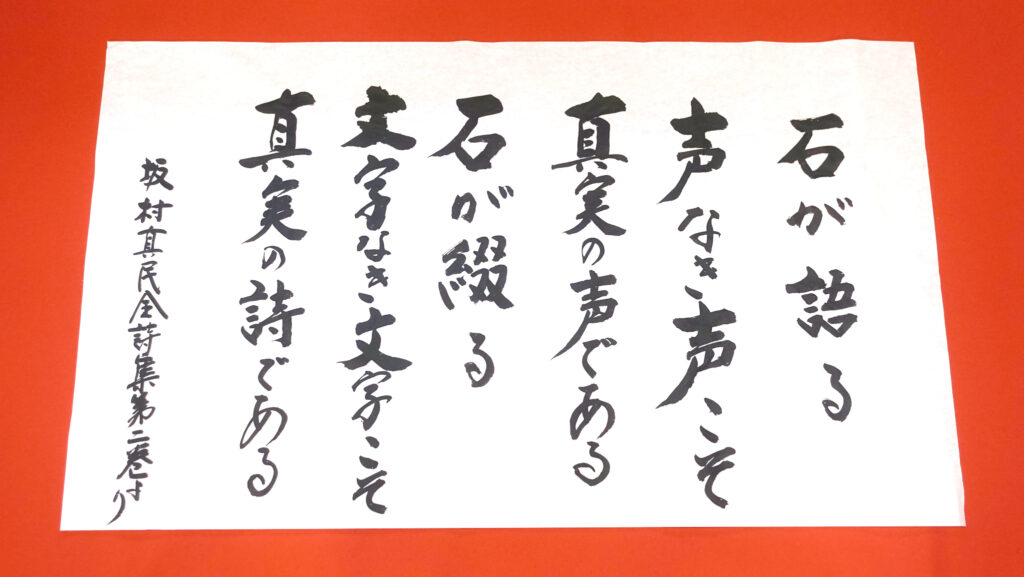 石が語る
声なき声こそ
真実の声である
石が綴る
文字なき文字こそ
真実の詩である
坂村真民全詩集第二巻より